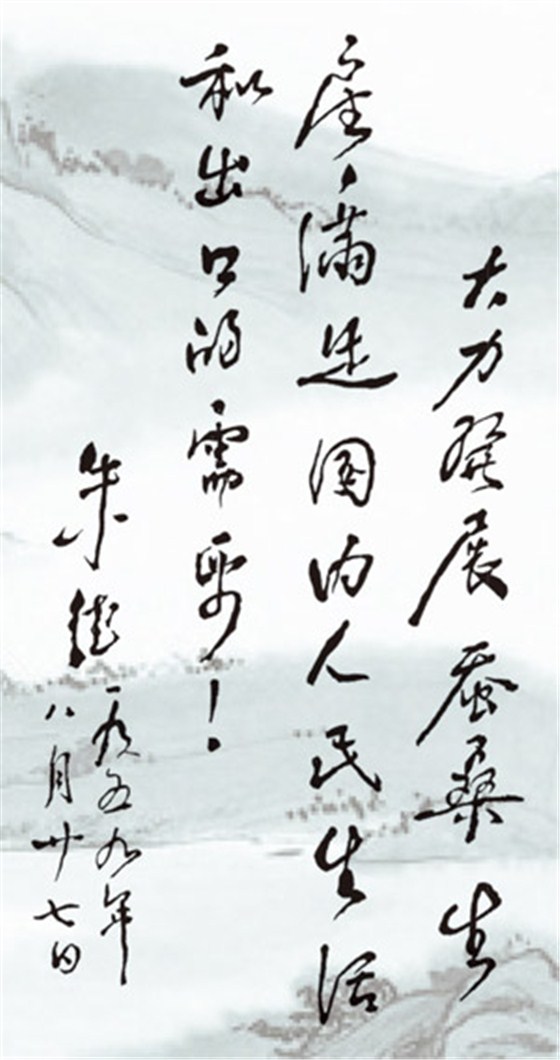 大力発展蚕桑生
產，滿足国内人民生活
和出口的需要！
朱德一九五九年
八月廿七日